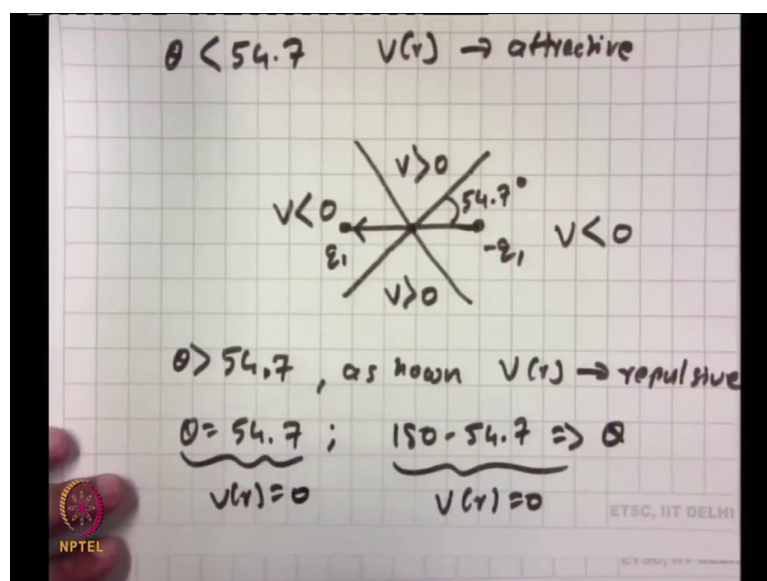 θ < 54.7 V(r) → attractive
V>0
54.7°
V<0
V<0
q₁
-q₁
V>0
θ> 54.7 , as hown V(r) → repulsive
θ= 54.7 ; 180 - 54.7 => θ
V(r)=0 V(r)=0
ETSC, IIT DELHI
NPTEL